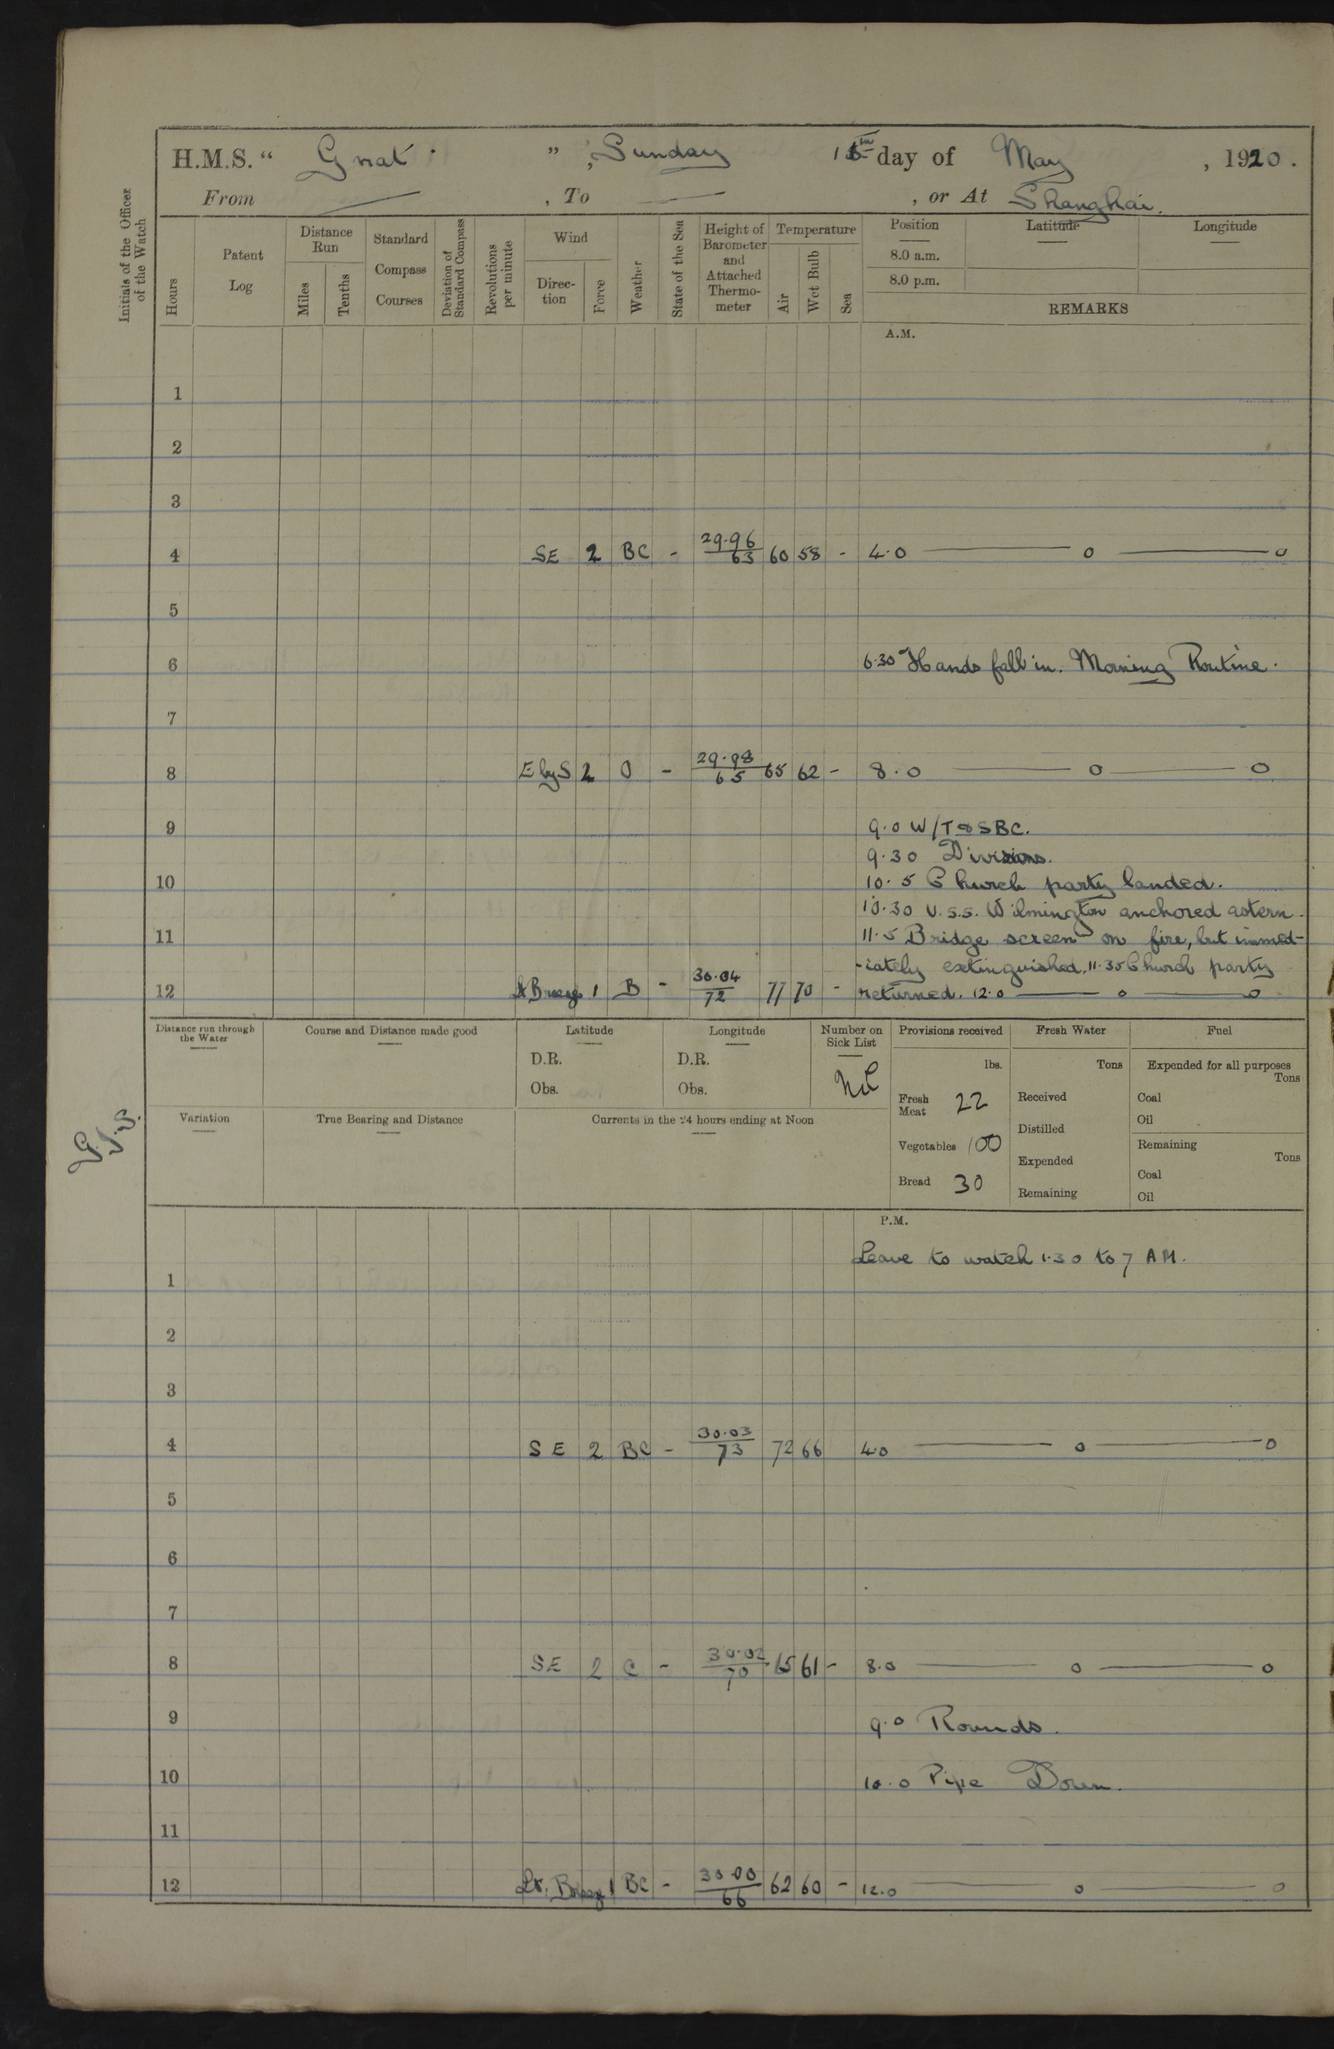 H.M.S. “ Gnat ” , Sunday 16th day of May , 1920 .
From — , To — , or At Shanghai.
Initials of the Officer of the Watch
Hours
Patent Log
Distance Run
Miles
Tenths
Standard Compass Courses
Deviation of Standard Compass
Revolutions per minute
Wind
Direction
Force
Weather
State of the Sea
Height of Barometer and Attached Thermometer
Temperature
Air
Wet Bulb
Sea
Position
8.0 a.m.
8.0 p.m.
Latitude
Longitude
REMARKS
A.M.
1
2
3
4 SE 2 BC - 29.96/63 60 58 - 4.0 — o — o
5
6 6.30 Hands fall in. Morning Routine.
7
8 E by S 2 O - 29.98/65 65 62 - 8.0 — o — o
9 9.0 W/T & SBC.
9.30 Divisions.
10 10.5 Church party landed.
10.30 U.S.S. Wilmington anchored astern.
11 11.5 Bridge screen on fire, but immed-
-iately extinguished. 11.30 Church party
12 Lt Breeze 1 B - 30.04/72 77 70 - returned. 12.0 — o — o
Distance run through the Water
Course and Distance made good
Latitude
D.R.
Obs.
Longitude
D.R.
Obs.
Number on Sick List
Nil
Provisions received
lbs.
Fresh Meat 22
Vegetables 100
Bread 30
Fresh Water
Tons
Received
Distilled
Expended
Remaining
Fuel
Expended for all purposes
Tons
Coal
Oil
Remaining
Tons
Coal
Oil
Variation
True Bearing and Distance
Currents in the 24 hours ending at Noon
P.M.
Leave to watch 1.30 to 7 AM.
1
2
3
4 SE 2 BC - 30.03/73 72 66 4.0 — o — o
5
6
7
8 SE 2 C - 30.02/70 65 61 - 8.0 — o — o
9 9.0 Rounds.
10 10.0 Pipe Down.
11
12 Lt. Breeze 1 BC - 30.00/66 62 60 - 12.0 — o — o